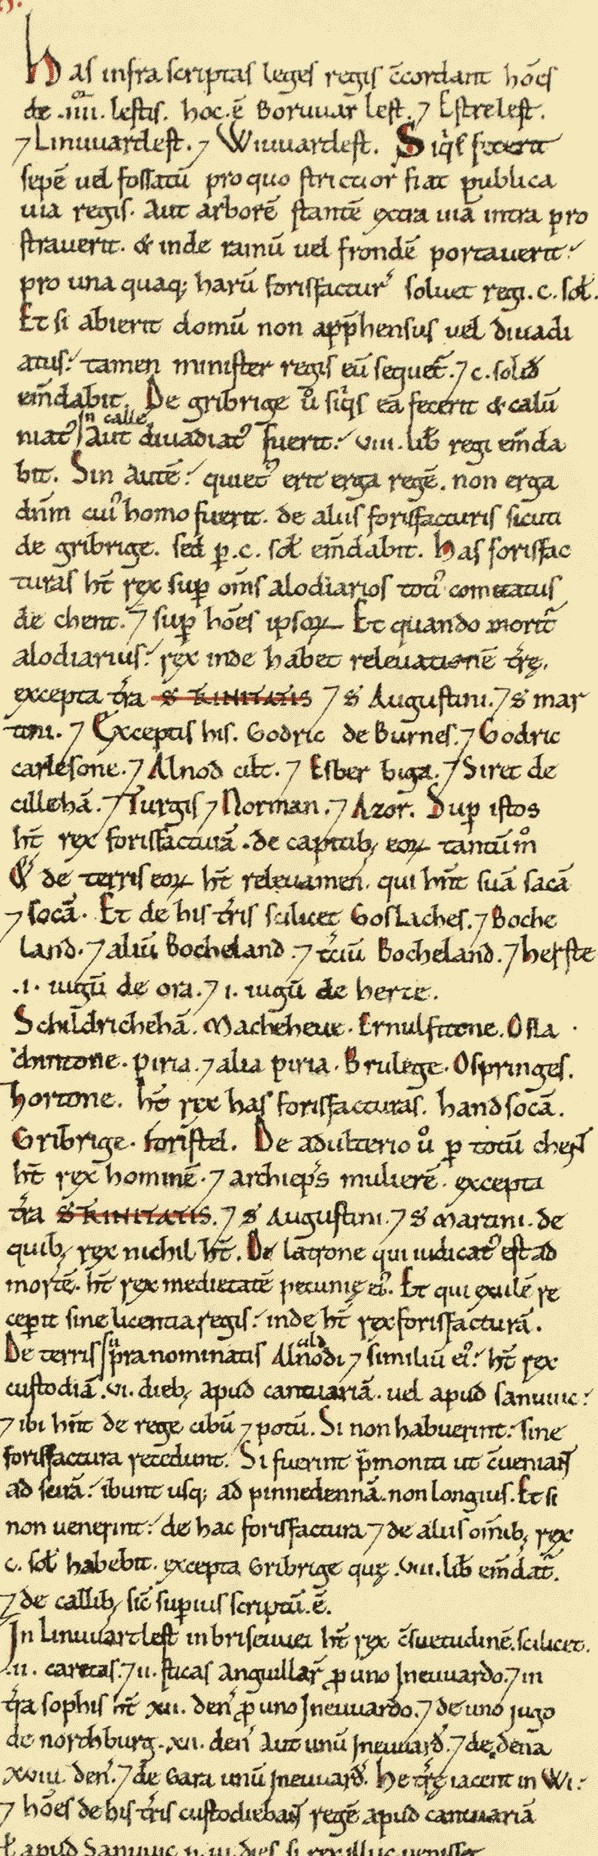 Has infra scriptas leges regis c̄cordant hōes
de .iiii. lestis. hoc.ē Boruuar lest. ⁊ Estrelest.
⁊ Linuuartlest. ⁊ Wiuuartlest. Siq̇s fecerit
sepē uel fossatū pro quo strictior fiat publica
uia regis. Aut arborē stantē extra uiā intra pro
strauerit. & inde ramū uel frondē portauerit:
pro una quaq; harū forisfactur' soluet regi. c. sol.
Et si abierit domū non app̄hensus uel diuadi
atus: tamen minister regis eū sequet'. ⁊ c. solid
em̄dabit. De gribrige ů siq̇s eā fecerit & calū
niat' aut diuadiat' in calle fuerit: viii. lib regi em̄da
bit. Sin autē: quiet' erit erga regē. non erga
dn̄m cui' homo fuerit. de aliis forisfacturis sicuti
de gribrige. sed p̱.c. sol em̄dabit. Has forisfac
turas ht̄ rex sup̱ om̄s alodiarios toti' comitatus
de chent. ⁊ sup̱ hōes ipsoꝝ Et quando morit'
alodiarius: rex inde habet releuationē tr̄ę.
excepta tr̄a S TRINITATIS ⁊ S Augustini. ⁊ S mar
tini. ⁊ Exceptis his. Godric de Burnes. ⁊ Godric
carlesone. ⁊ Alnod cilt. ⁊ Esber biga. ⁊ Siret de
cillehā. ⁊ Turgis ⁊ Norman. ⁊ Azor. Sup̱ istos
ht̄ rex forisfacturā. de capitib; eoꝝ tantūm̊
& de terris eoꝝ ht̄ releuamen. qui hn̄t suā sacā
⁊ socā. Et de his tr̄is scilicet Goslaches. ⁊ Boche
land. ⁊ aliū Bocheland. ⁊ tciū Bocheland. ⁊ herste
.i. iugū de ora. ⁊ i. iugū de herte.
Schildricheha̅. Macheheue. Ernulfitone. Osla
chintone. piria. ⁊ alia piria. Brulege. Ospringes.
hortone. ht̄ rex has forisfacturas. handsocā.
Gribrige. foristel. De adulterio ů p̱ totū chent
ht̄ rex hominē. ⁊ archiep̄s mulierē. excepta
tr̄a S TRINITATIS. ⁊ S Augustini. ⁊ S martini. de
quib; rex nichil ht̄. De latrone qui iudicat' est ad
mortē. ht̄ rex medietatē pecunię ei'. Et qui exulē re
cep̱it sine licentia regis: inde ht̄ rex forisfacturā.
De terris sup̱ra nominatis Alnoldi ⁊ similiū ei': ht̄ rex
custodiā. vi. dieb; apud cantuariā. uel apud sanuuic:
⁊ ibi hn̄t de rege cibū ⁊ potū. Si non habuerint: sine
forisfactura recedunt. Si fuerint p̄moniti ut c̄ueniant
ad scirā: ibunt usq; ad pinnedennā. non longius. Et si
non uenerint: de hac forisfactura ⁊ de aliis om̄ib; rex
c. sol habebit. excepta Gribrige quę .viii. lib em̄dat'.
⁊ de callib; sic̄ superius scriptū.ē.
In linuuartlest in briseuuei ht̄ rex c̄suetudinē. scilicet.
.ii. caretas. ⁊ ii. sticas anguillar' p̱ uno Ineuuardo. ⁊ in
tr̄a sophis ht̄ xii. den' p̱ uno Ineuuardo. ⁊ de uno iugo
de northburg. xii. den' aut unū Ineuuard'. ⁊ de dena
xviii. den'. ⁊ de Gara unū Ineuuard'. He tr̄ę iacent in Wi:
⁊ hōes de his tr̄is custodiebant regē apud cantuariā
ł apud Sanuuic p̱ iii. dies si rex illuc uenisset